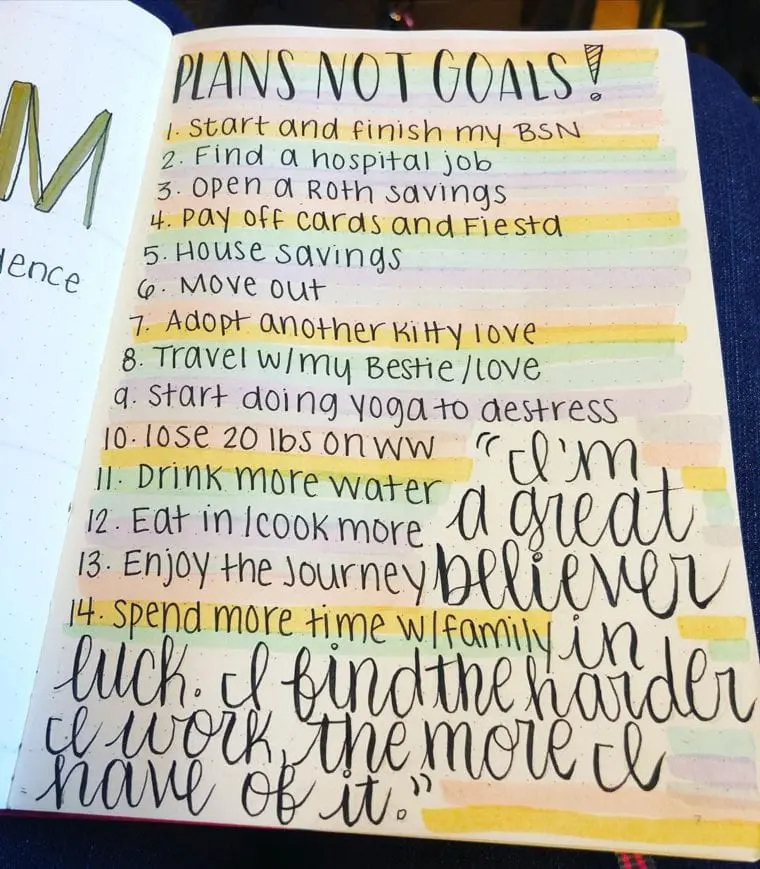 M
dence
PLANS NOT GOALS!
1. Start and finish my BSN
2. Find a hospital job
3. Open a Roth savings
4. Pay off cards and Fiesta
5. House savings
6. Move out
7. Adopt another kitty love
8. Travel w/my Bestie/love
9. Start doing yoga to destress
10. lose 20 lbs on WW
11. Drink more water
12. Eat in/cook more
13. Enjoy the Journey
14. Spend more time w/family
"I'm
a great
believer
in
luck. I find the harder
I work, the more I
have of it."
7